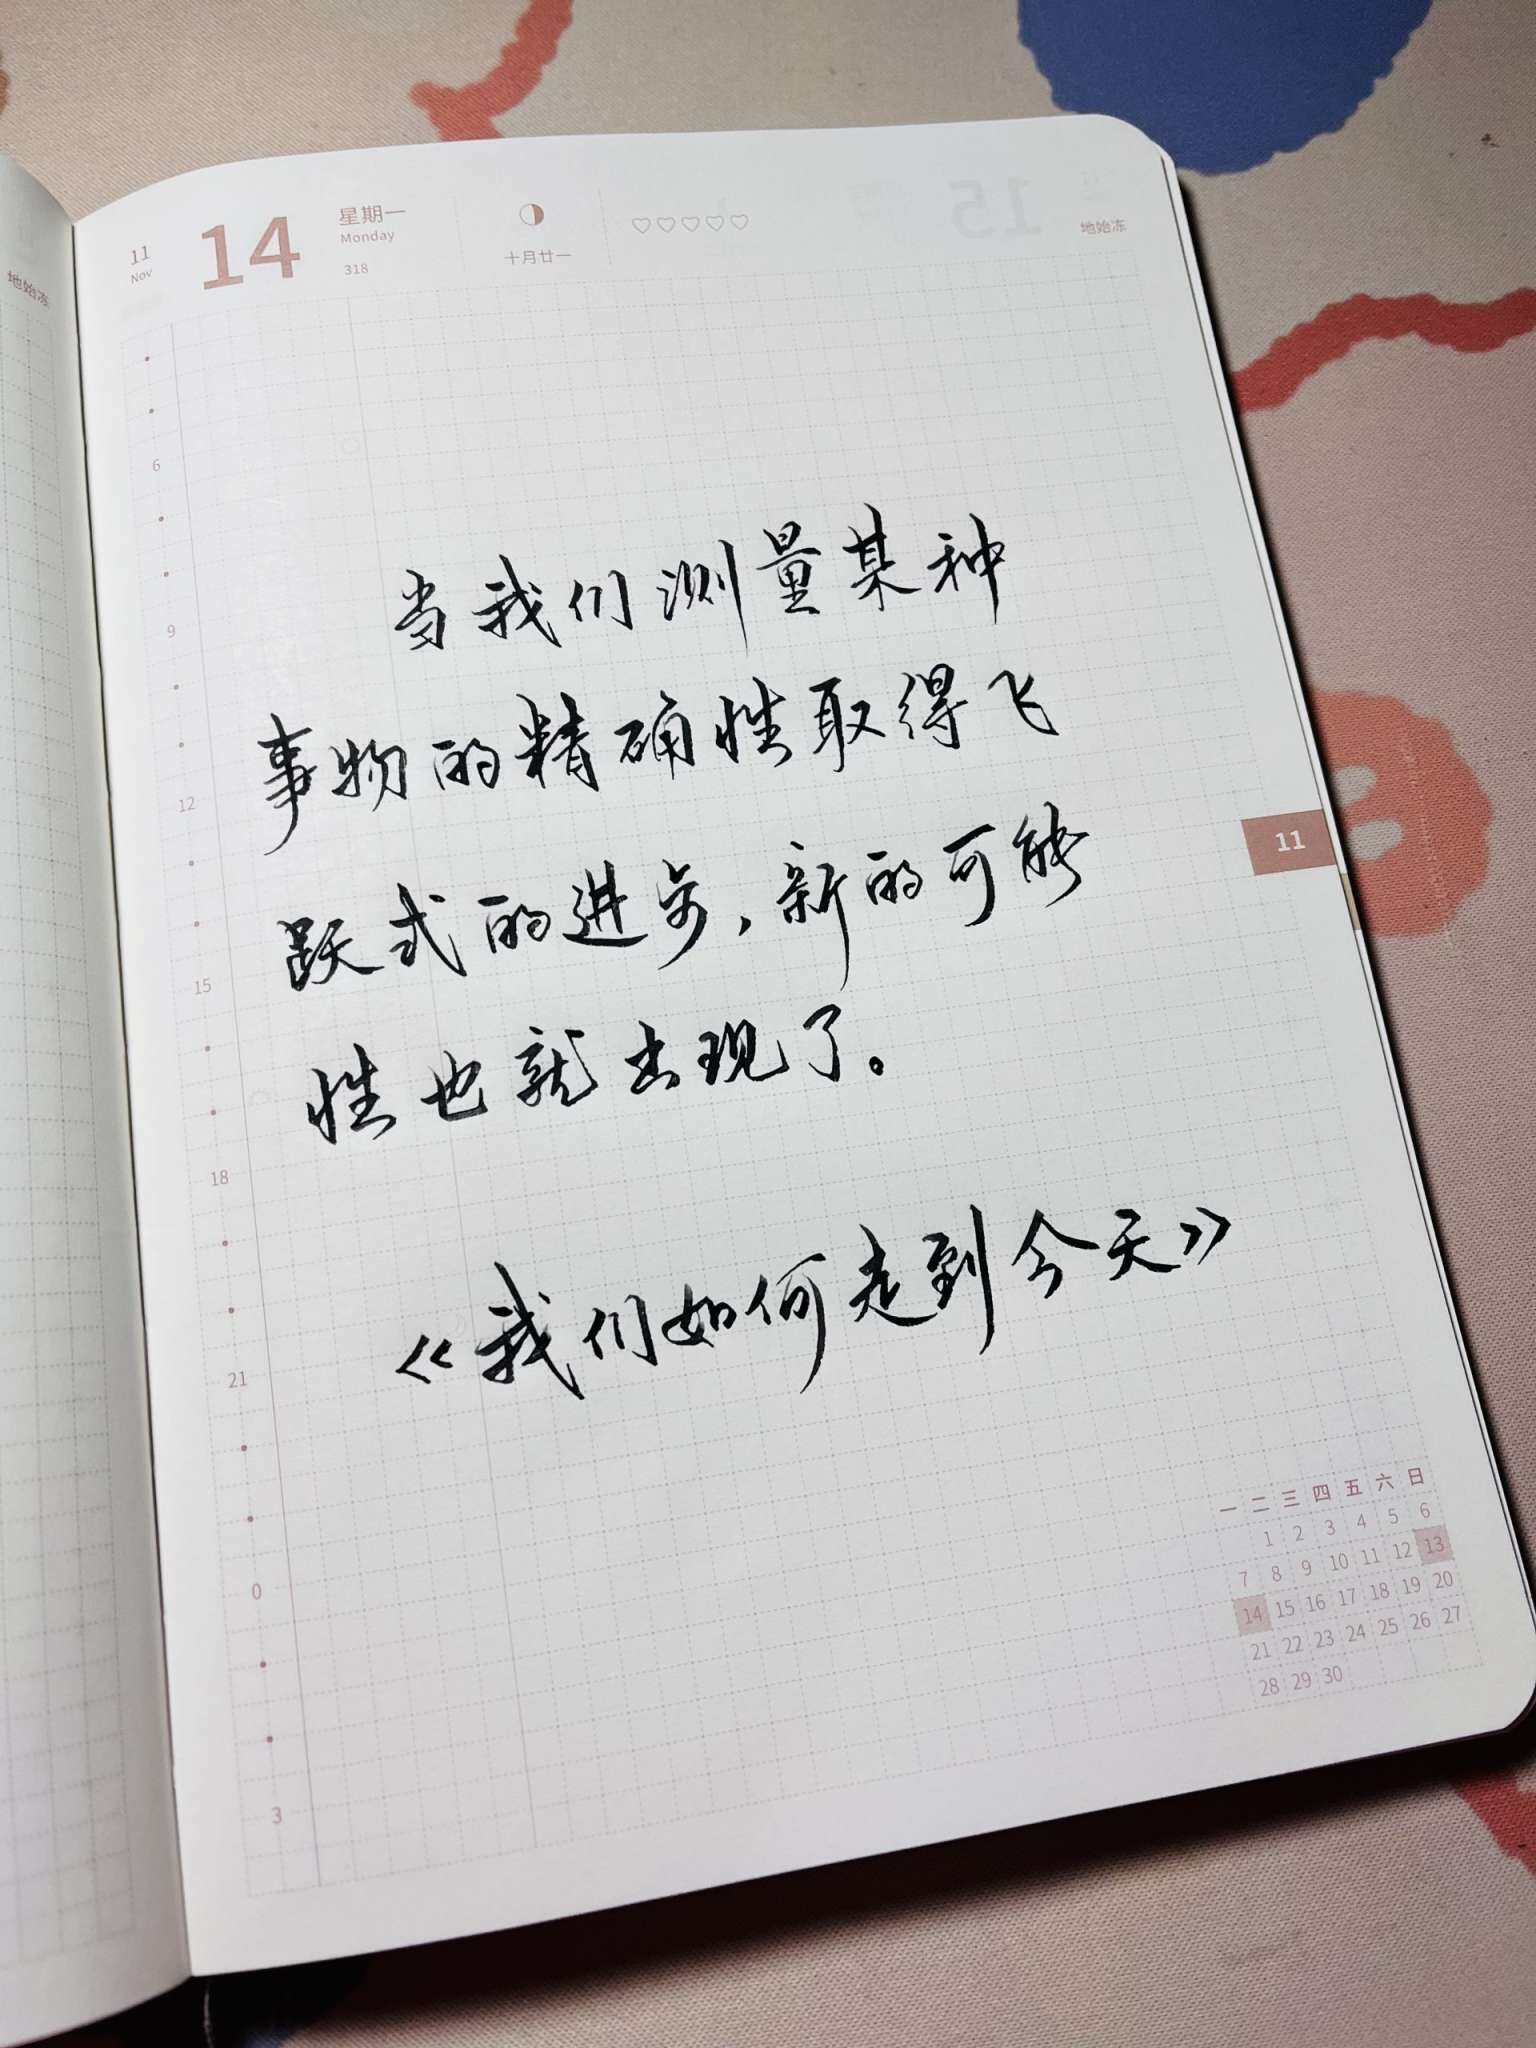 11
Nov
14
星期一
Monday
318
十月廿一
♡♡♡♡♡
15
地始冻
地始冻
6
9
12
15
18
21
0
3
当我们测量某种
事物的精确性取得飞
跃式的进步,新的可能
性也就出现了。
《我们如何走到今天》
11
一 二 三 四 五 六 日
1 2 3 4 5 6
7 8 9 10 11 12 13
14 15 16 17 18 19 20
21 22 23 24 25 26 27
28 29 30